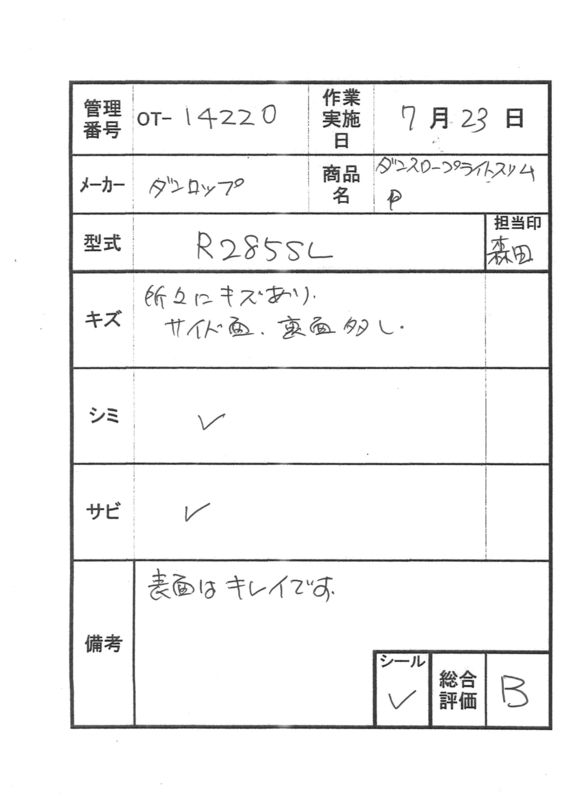 管理番号 OT-14220 作業実施日 7月23日
メーカー ダンロップ 商品名 ダンスロープライトスリム
型式 R285SL 担当印 森田
キズ 所々にキズあり.
サイド面、裏面多し.
シミ ✓
サビ ✓
備考 表面はキレイです.
シール ✓ 総合評価 B